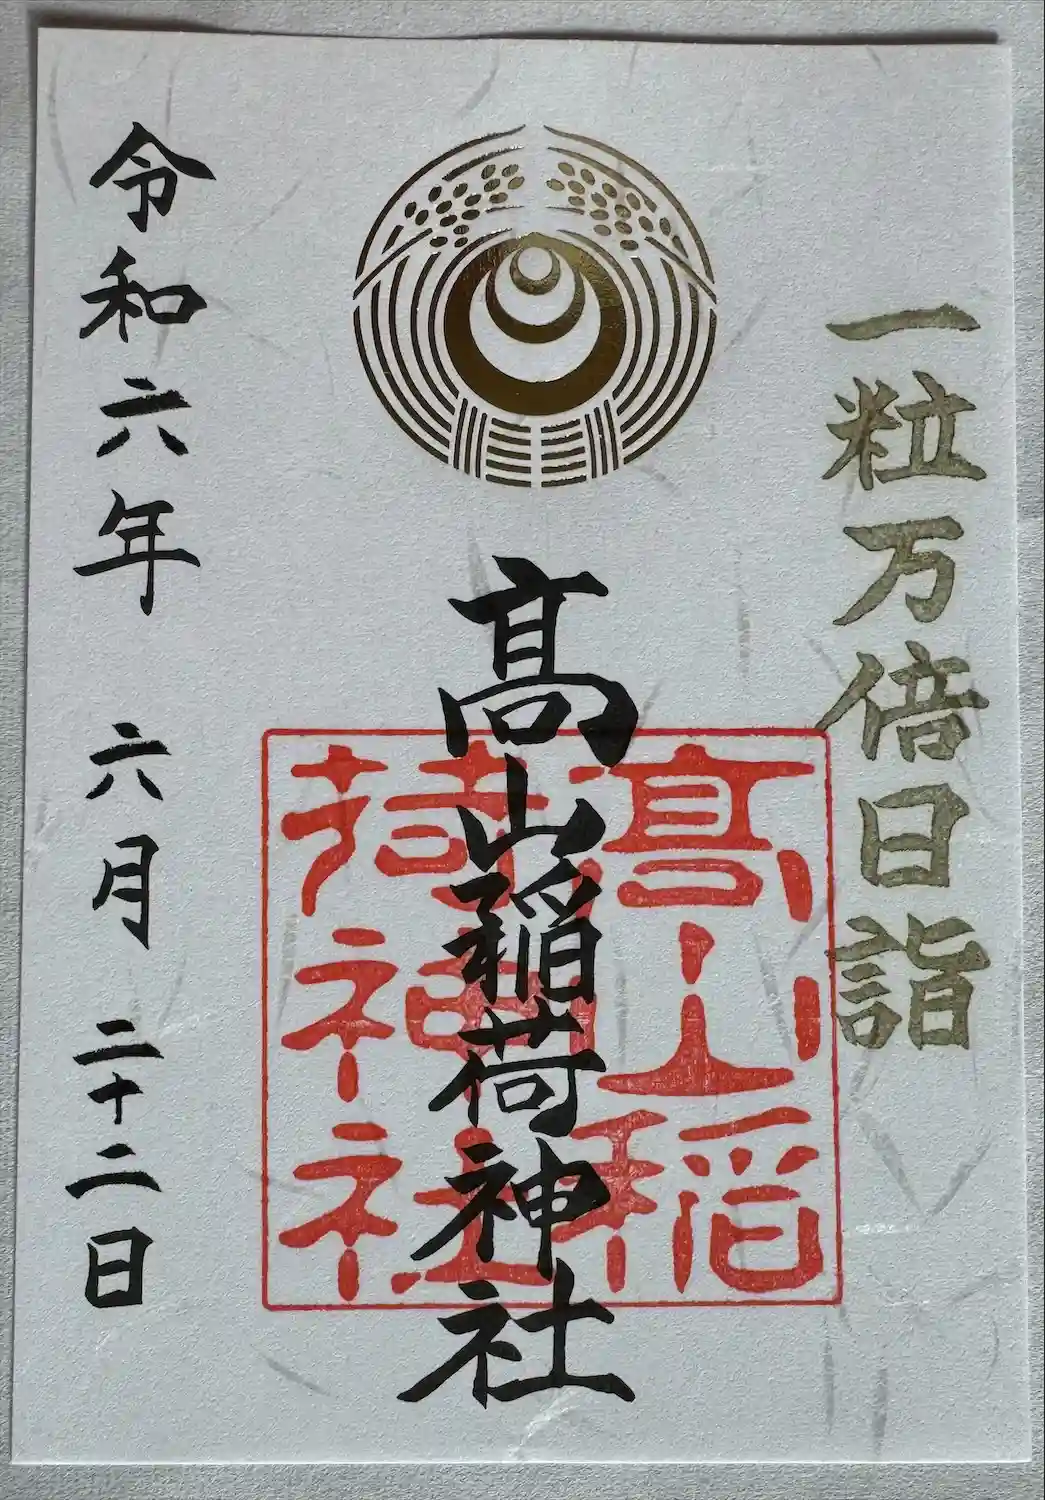 一粒万倍日詣
髙山稲荷神社
髙山稲
荷神社
令和六年 六月 二十二日